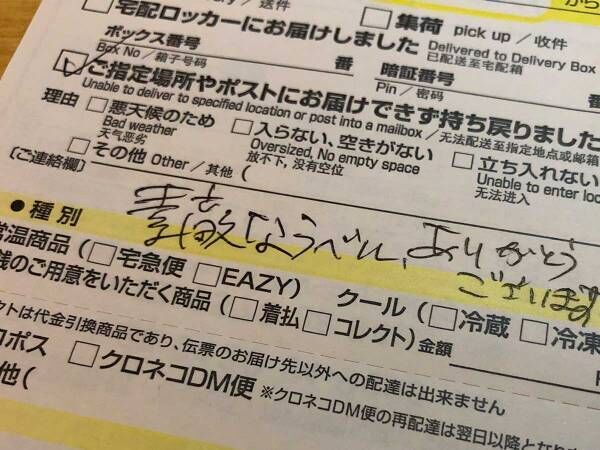 から
□宅配ロッカーにお届けしました Delivered to Delivery Box 已配送至宅配箱
□集荷 pick up / 收件
ボックス番号 番
Box No / 箱子号码
暗証番号
Pin / 密码
☑ご指定場所やポストにお届けできず持ち戻りました
Unable to deliver to specified location or post into a mailbox / 无法配送至指定地点或邮箱
理由 □悪天候のため
Bad weather
天气恶劣
□入らない、空きがない
Oversized, No empty space
放不下, 没有空位
□立ち入れない
Unable to enter
无法进入
□その他 Other / 其他 (
〔ご連絡欄〕
素敵なラベル、ありがとう
ございます
●種別
常温商品 (□宅急便 □EAZY) クール (□冷蔵 □冷凍
のご用意をいただく商品 (□着払 □コレクト) 金額
クトは代金引換商品であり、伝票のお届け先以外への配達は出来ません
ポス □クロネコDM便 ※クロネコDM便の再配達は翌日以降とな
他 (